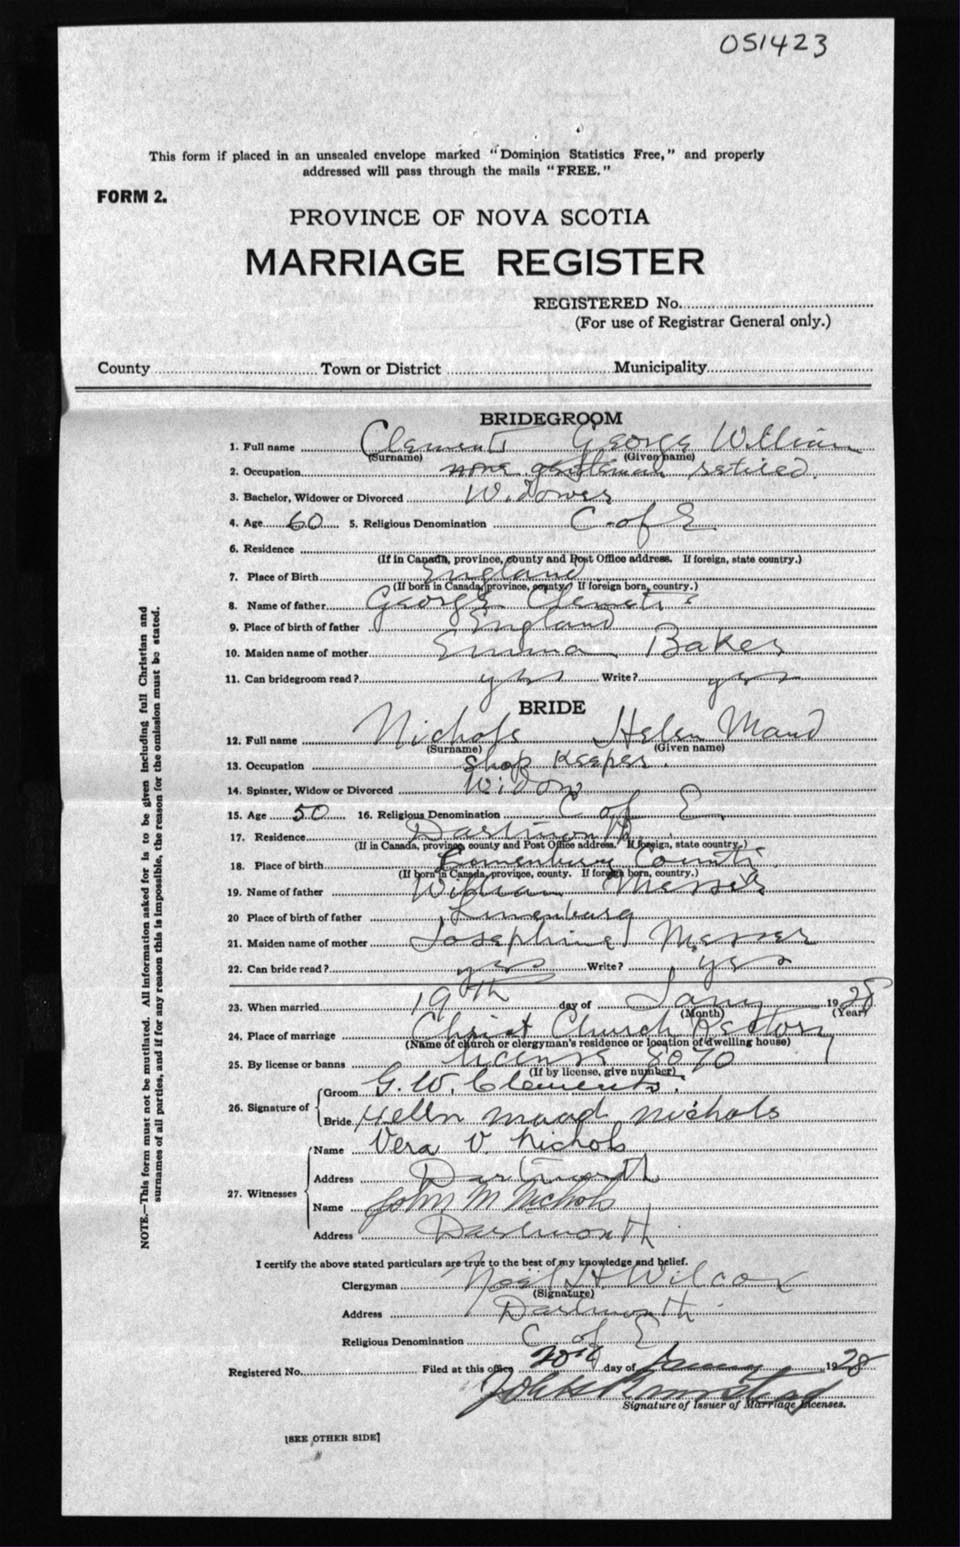 051423
This form if placed in an unsealed envelope marked "Dominion Statistics Free," and properly
addressed will pass through the mails "FREE."
FORM 2.
PROVINCE OF NOVA SCOTIA
MARRIAGE REGISTER
REGISTERED No.
(For use of Registrar General only.)
County Town or District Municipality
NOTE.—This form must not be mutilated. All information asked for is to be given including full Christian and
surnames of all parties, and if for any reason this is impossible, the reason for the omission must be stated.
BRIDEGROOM
1. Full name Clements George William
(Surname) (Given name)
2. Occupation none gentleman retired
3. Bachelor, Widower or Divorced Widower
4. Age 60 5. Religious Denomination C of E
6. Residence
(If in Canada, province, county and Post Office address. If foreign, state country.)
7. Place of Birth England
(If born in Canada, province, county. If foreign born, country.)
8. Name of father George Clements
9. Place of birth of father England
10. Maiden name of mother Emma Baker
11. Can bridegroom read? yes Write? yes
BRIDE
12. Full name Nichols Helen Maud
(Surname) (Given name)
13. Occupation Shop Keeper
14. Spinster, Widow or Divorced Widow
15. Age 50 16. Religious Denomination C of E
17. Residence Dartmouth
(If in Canada, province county and Post Office address. If foreign, state country.)
18. Place of birth Lunenburg County
(If born in Canada, province, county. If foreign born, country.)
19. Name of father William
20 Place of birth of father Lunenburg
21. Maiden name of mother Josephine
22. Can bride read? yes Write? yes
23. When married 19th day of Jany 1928
(Month) (Year)
24. Place of marriage Christ Church Rectory
(Name of church or clergyman's residence or location of dwelling house)
25. By license or banns license 8070
(If by license, give number)
26. Signature of Groom G. W. Clements.
Bride Hellen maad nichols
27. Witnesses Name Vera V. Nichols
Address Dartmouth
Name John M Nichols
Address Dartmouth
I certify the above stated particulars are true to the best of my knowledge and belief.
Clergyman Noel H Wilcox
(Signature)
Address Dartmouth
Religious Denomination C of E
Registered No. Filed at this office 20th day of January 1928
Signature of Issuer of Marriage Licenses.
[SEE OTHER SIDE]